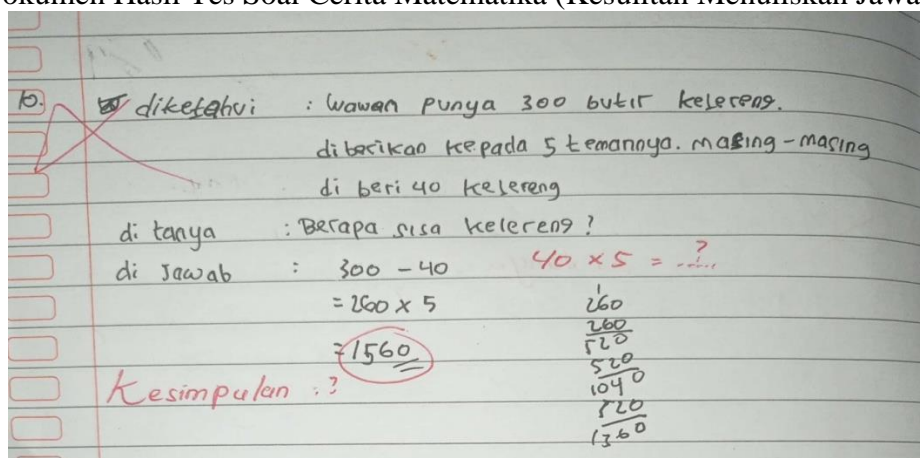 Dokumen Hasil Tes Soal Cerita Matematika (Kesulitan Menuliskan Jawa
10. diketahui : Wawan punya 300 butir kelereng.
diberikan kepada 5 temannya. masing-masing
di beri 40 kelereng
di tanya : Berapa sisa kelereng?
di Jawab : 300 - 40 40 x 5 = ...?...
= 260 x 5
= 1560
Kesimpulan : ?
1
260
260
520
520
1040
520
1360